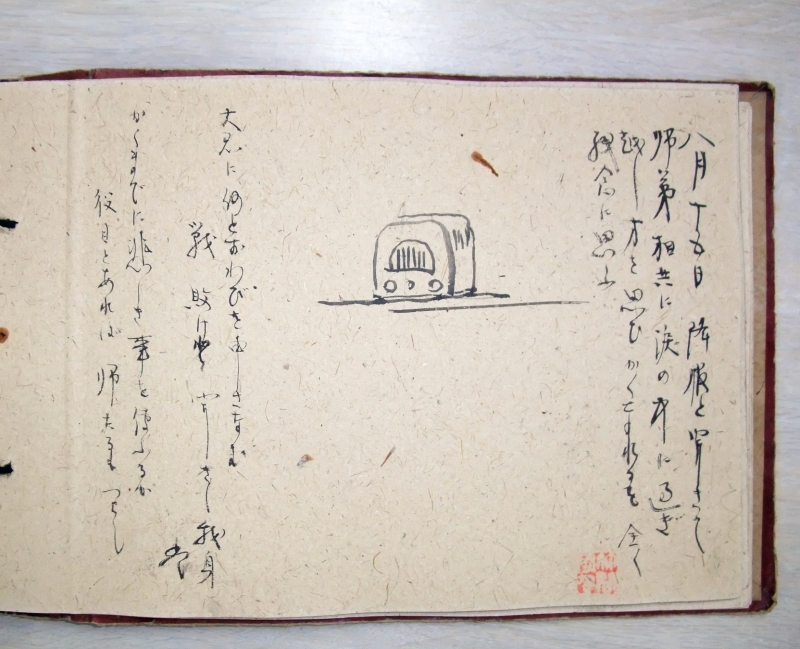 八月十五日 降服と聞きて
師弟相共に涙の中に過ぎ
越し方を思ひ 全く
残念に思ふ
大君に何とおわびを申しさなむ
戦 敗けぬと 聞きし我身
かくまでに悲しき事を伝ふるが
役目とあれば 師たるもつらし